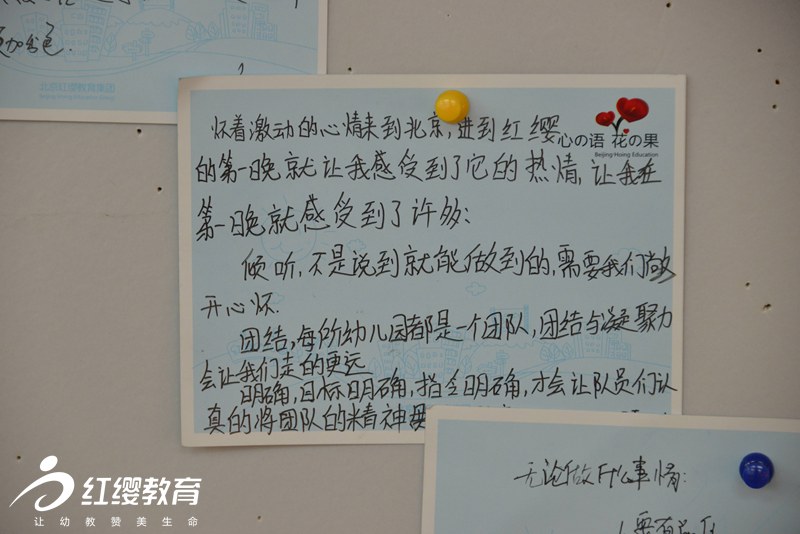 加出色.
北京红缨教育集团
怀着激动的心情来到北京,进到红缨
心の语 花の果
Beijing Hoing Education
的第一晚就让我感受到了它的热情,让我在
第一晚就感受到了许多:
倾听,不是说到就能做到的,需要我们敞
开心怀.
团结,每所幼儿园都是一个团队,团结与凝聚力
会让我们走的更远
明确,目标明确,指令明确,才会让队员们认
真的将团队的精神
无论做什么事情:
红缨教育
让幼教赞美生命